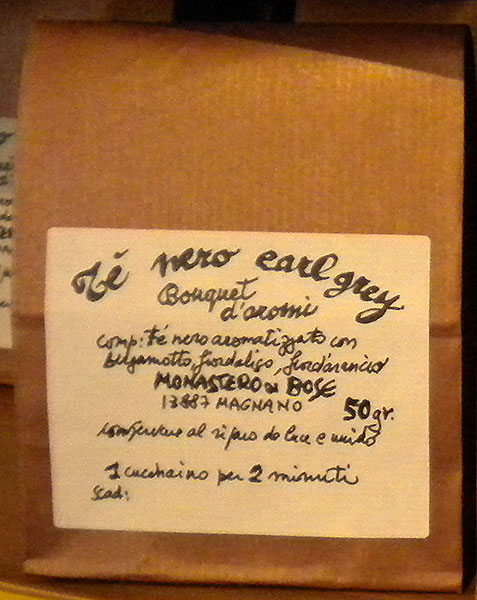 Té nero earl grey
Bouquet
d'aromi
comp: té nero aromatizzato con
bergamotto, fiordaliso, fiord'arancio
MONASTERO DI BOSE
13887 MAGNANO 50gr.
conservare al riparo da luce e umido
1 cucchaino per 2 minuti
Scad: